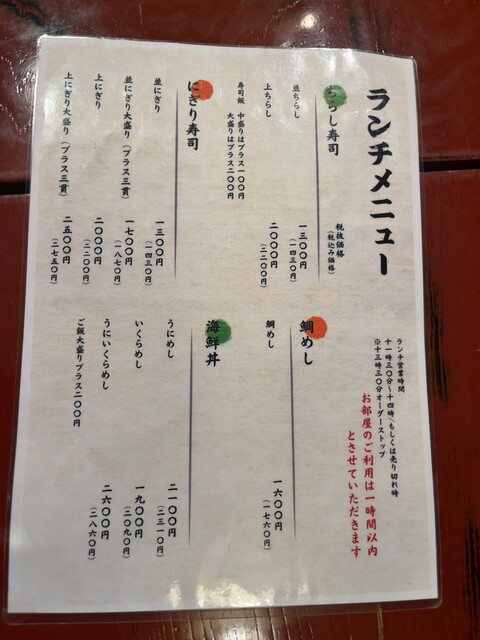 ランチメニュー
ランチ営業時間
十一時三〇分～十四時/もしくは売り切れ時
※十三時三〇分オーダーストップ
お部屋のご利用は一時間以内
とさせていただきます
ちらし寿司
税抜価格
(税込み価格)
並ちらし
一三〇〇円
(一四三〇円)
上ちらし
二〇〇〇円
(二二〇〇円)
寿司飯 中盛りはプラス一〇〇円
大盛りはプラス二〇〇円
にぎり寿司
並にぎり
一三〇〇円
(一四三〇円)
並にぎり大盛り(プラス三貫)
一七〇〇円
(一八七〇円)
上にぎり
二〇〇〇円
(二二〇〇円)
上にぎり大盛り(プラス三貫)
二五〇〇円
(二七五〇円)
鯛めし
鯛めし
一六〇〇円
(一七六〇円)
海鮮丼
うにめし
二一〇〇円
(二三一〇円)
いくらめし
一九〇〇円
(二〇九〇円)
うにいくらめし
二六〇〇円
(二八六〇円)
ご飯大盛りプラス二〇〇円